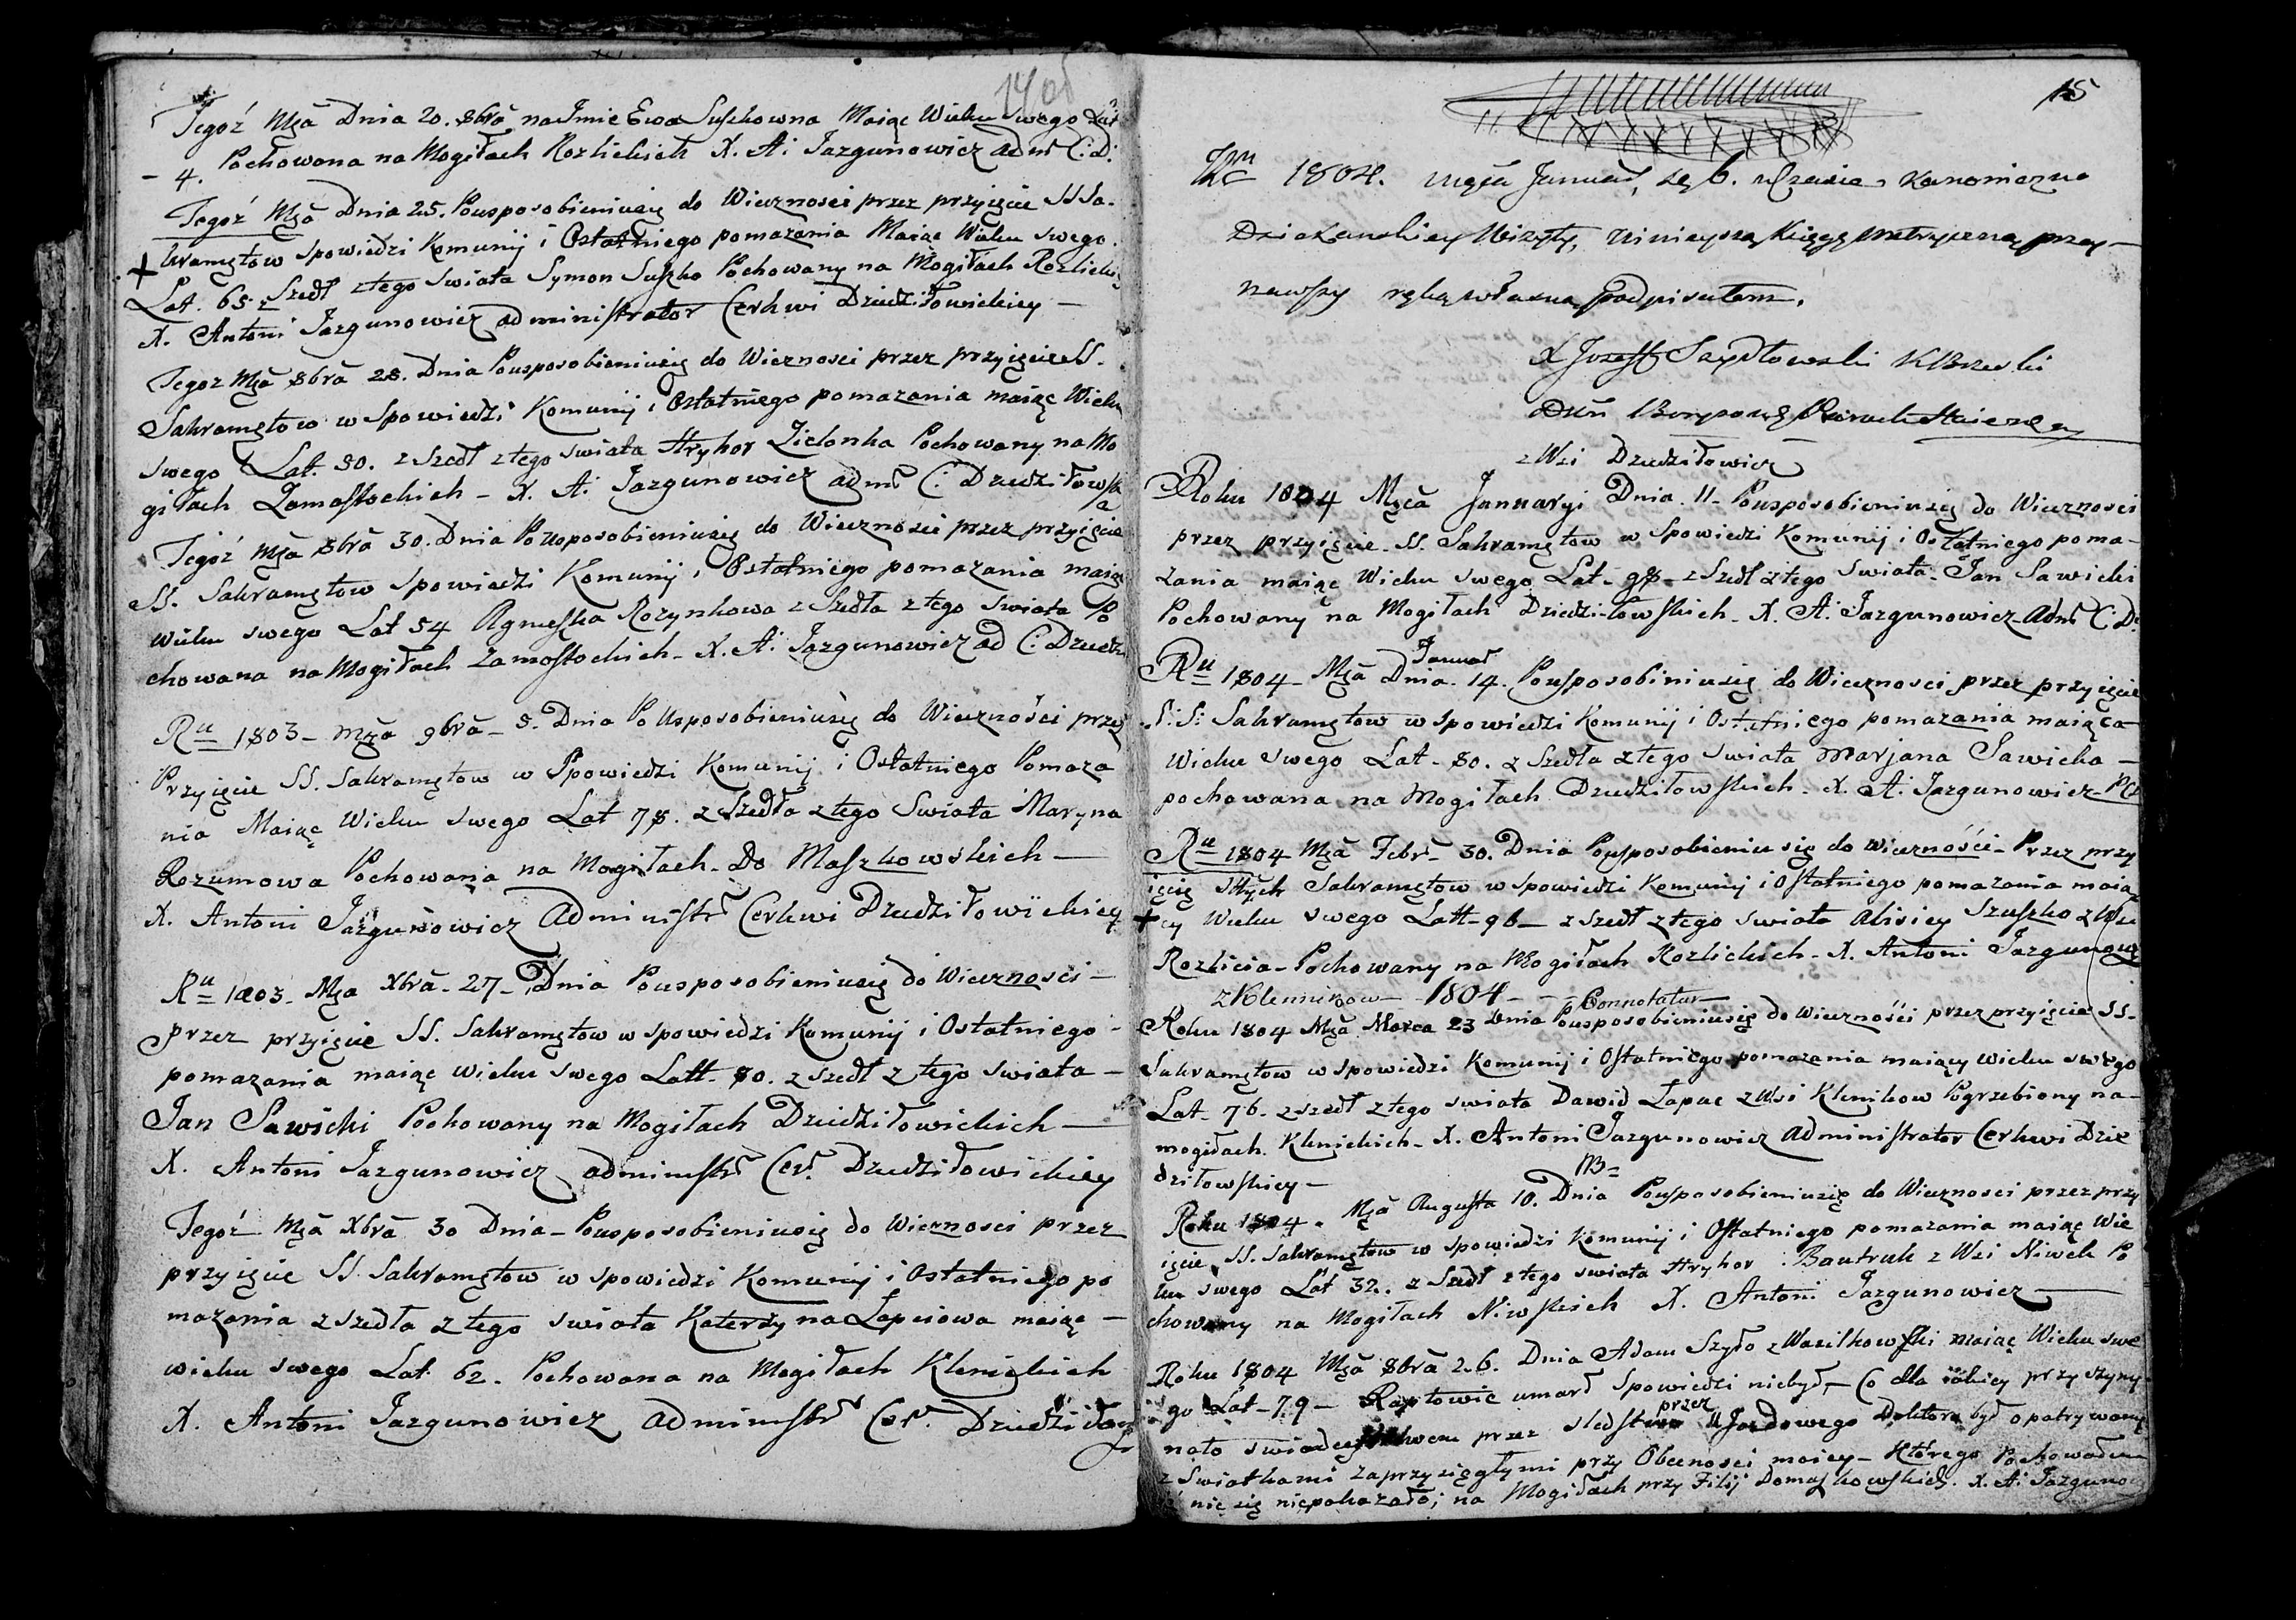 14об
Tegoż Mca Dnia 20. 8brã na Imie Ewa Suszkowna Maiąc Wieku Swego Lat
- 4. Pochowana na Mogiłach Rozlickich X. A: Jazgunowicz adm̃ C: D:
Tegoż Mcã Dnia 25. Pousposobieniusię do Wiecznosci przez przyięcie SS Sa-
kramętow Spowiedzi Komunij i Ostatniego pomazania Maiąc Wieku swego
Lat. 65 z Szedł ztego Swiata Symon Suszko Pochowany na Mogiłach Rozlickich
X. Antoni Jazgunowicz administrator Cerkwi Dziedziłowickiey —
Tegoz Mcã 8brã 28. Dnia Pousposobieniusię do Wiecznosci przez przyięcie SS.
Sakramętow w Spowiedzi Komunij i Ostatniego pomazania maiąc Wieku
swego Lat. 80. z Szedł ztego swiata Hryhor Zielonka Pochowany na Mo
giłach Zamostockich - X. A: Jazgunowicz adm̃ C: Dziedziłows
Tegoż Mcã 8brã 30. Dnia Pousposobieniusię do Wiecznosci przez przyięcie
SS. Sakramętow Spowiedzi Komunij i Ostatniego pomazania maiąc
Wieku swego Lat 54 Agneszka Rozynkowa z Szedła ztego Swiata Po
chowana na Mogiłach Zamostockich - X. A: Jazgunowicz ad C: Dziedzi
Ru 1803 - Mcã 9brã - 5. Dnia Po Usposobieniusię do Wieczności przez
Przyięcie SS. Sakramętow w Spowiedzi Komunij i Ostatniego Pomaza
nia Maiąc Wieku swego Lat 78. z Szedła ztego Swiata Maryna
Rozumowa Pochowana na Mogiłach Do Maszkowskich —
X. Antoni Jazgunowicz Administr Cerkwi Dziedziłowickiey
Ru 1803 - Mca Xbrã - 27 - Dnia Pousposobieniusię do Wiecznosci —
przez przyięcie SS. Sakramętow w spowiedzi Komunij i Ostatniego -
pomazania maiąc wieku swego Latt. 80. z szedł z tego swiata —
Jan Sawicki Pochowany na Mogiłach Dziedziłowickich —
X. Antoni Jazgunowicz administr Cer. Dziedziłowickiey
Tegoż Mcã Xbrã 30 Dnia - Pousposobieniusię do Wiecznosci przez
przyięcie SS Sakramętow w spowiedzi Komunij i Ostatniego po
mazania z szedła z tego swiata Katerzyna Lapciowa maiąc —
wieku swego Lat. 62. Pochowana na Mogiłach Klenickich
X. Antoni Jazgunowicz Administr Cer. Dziedziłow
15
1804. Męca Januar, 6. w Czasie Kanoniczne
Dziekanskiey Wizyty, niniejszą Księgę Metryczną przey-
nawszy ręką własną podpisałem.
X Jozeff Szydłowski
z Wsi Dziedziłowicz
Roku 1804 Męcã Januaryi Dnia 11 - Pousposobieniusię do Wiecznosci
przez przyięcie SS. Sakramętow w Spowiedzi Komunij i Ostatniego poma-
zania maiąc Wieku swego Lat - 98 - z Szedł ztego Swiata - Jan Sawicki
Pochowany na Mogiłach Dziedziłowskich - X. A: Jazgunowicz Adm̃ C: D:
Januar
Ru 1804 - Mcã Dnia. 14. Pousposobiniusię do Wiecznosci przez przyięcie
S: S: Sakramętow w Spowiedzi Komunij i Ostatniego pomazania maiąca
Wieku swego Lat - 80. z Szedła ztego swiata Marjana Sawicka —
pochowana na Mogiłach Dziedziłowskich - X. A: Jazgunowicz
Ru 1804 Mcã Febr - 30. Dnia Pousposobieniu się do wieczności - Przez przy
ięcię SStych Sakramętow w spowiedzi Komunij i Ostatniego pomazania maią
cy Wieku swego Latt - 96 - z szedł ztego swiata Alisiey Szuszko z Wsi
Rozlicia - Pochowany na Mogiłach Rozlickich - X. Antoni Jazgunow
z Klennikow - 1804 - - Connotatur —
Roku 1804 Mcã Marca 23 Dnia Pousposobieniusię do Wieczności przez przyięcie SS.
Sakramętow w spowiedzi Komunij i Ostatniego pomazania maiący wieku swego
Lat - 76. z szedł ztego swiata Dawid Łapac z Wsi Klenikow Pogrzebiony na -
mogiłach Klenickich - X. Antoni Jazgunowicz Administrator Cerkwi Dzie
dziłowskiey -
NB =
Roku 1804. Mcã Augusta 10. Dnia Pousposobieniusię do Wiecznosci przez przy
ięcie SS. Sakramętow w spowiedzi Komunij i Ostatniego pomazania maiąc Wie
ku swego Lat 32. z Szedł ztego swiata Hryhor Bautruk z Wsi Niwek Po
chowany na Mogiłach Niwskich X. Antoni Jazgunowicz —
Roku 1804 Mcã 8brã 26. Dnia Adam Szyło z Wasilkowski maiąc Wieku swe
go Lat - 79 - Raptowie umarł Spowiedzi niebył, Co dla iakiey przyczyny
przez
nato przez sledstwo Ujazdowego Doktora był opatrywany
z Swiatkami zaprzysięgłymi przy Obecnosci moiey - Którego Pochowałem
nic się niepokazało; na Mogiłach przy Filij Domaszkowskiey. X. A: Jazgunow